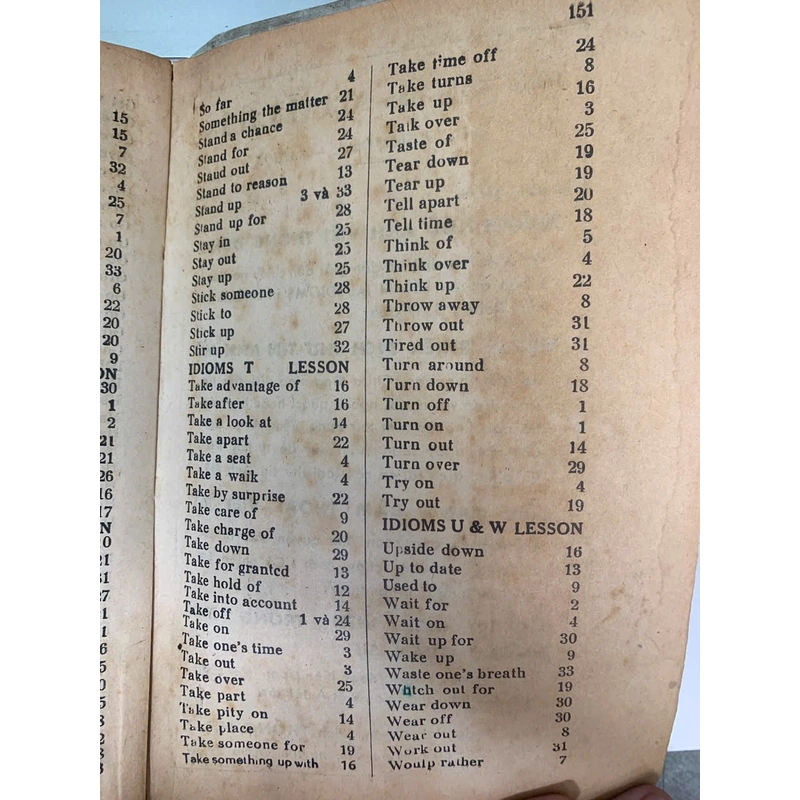 15
15
7
32
4
25
7
1
20
33
6
22
20
20
9
ON
30
1
2
21
21
26
16
17
N
0
21
31
27
1
1
6
5
0
5
8
2
8
3
So far 4
Something the matter 21
Stand a chance 24
Stand for 24
Staud out 27
Stand to reason 13
Stand up 3 và 33
Stand up for 28
Stay in 25
Stay out 25
Stay up 25
Stick someone 28
Stick to 28
Stick up 27
Stir up 32
IDIOMS T LESSON
Take advantage of 16
Take after 16
Take a look at 14
Take apart 22
Take a seat 4
Take a waik 4
Take by surprise 22
Take care of 9
Take charge of 20
Take down 29
Take for granted 13
Take hold of 12
Take into account 14
Take off 1 và 24
Take on 29
Take one's time 3
Take out 3
Take over 25
Take part 4
Take pity on 14
Take place 4
Take someone for 19
Take something up with 16
151
Take time off 24
Take turns 8
Take up 16
Talk over 3
Taste of 25
Tear down 19
Tear up 19
Tell apart 20
Tell time 18
Think of 5
Think over 4
Think up 22
Throw away 8
Throw out 31
Tired out 31
Turn around 8
Turn down 18
Turn off 1
Turn on 1
Turn out 14
Turn over 29
Try on 4
Try out 19
IDIOMS U & W LESSON
Upside down 16
Up to date 13
Used to 9
Wait for 2
Wait on 4
Wait up for 30
Wake up 9
Waste one's breath 33
Watch out for 19
Wear down 30
Wear off 30
Wear out 8
Work out 31
Woulp rather 7